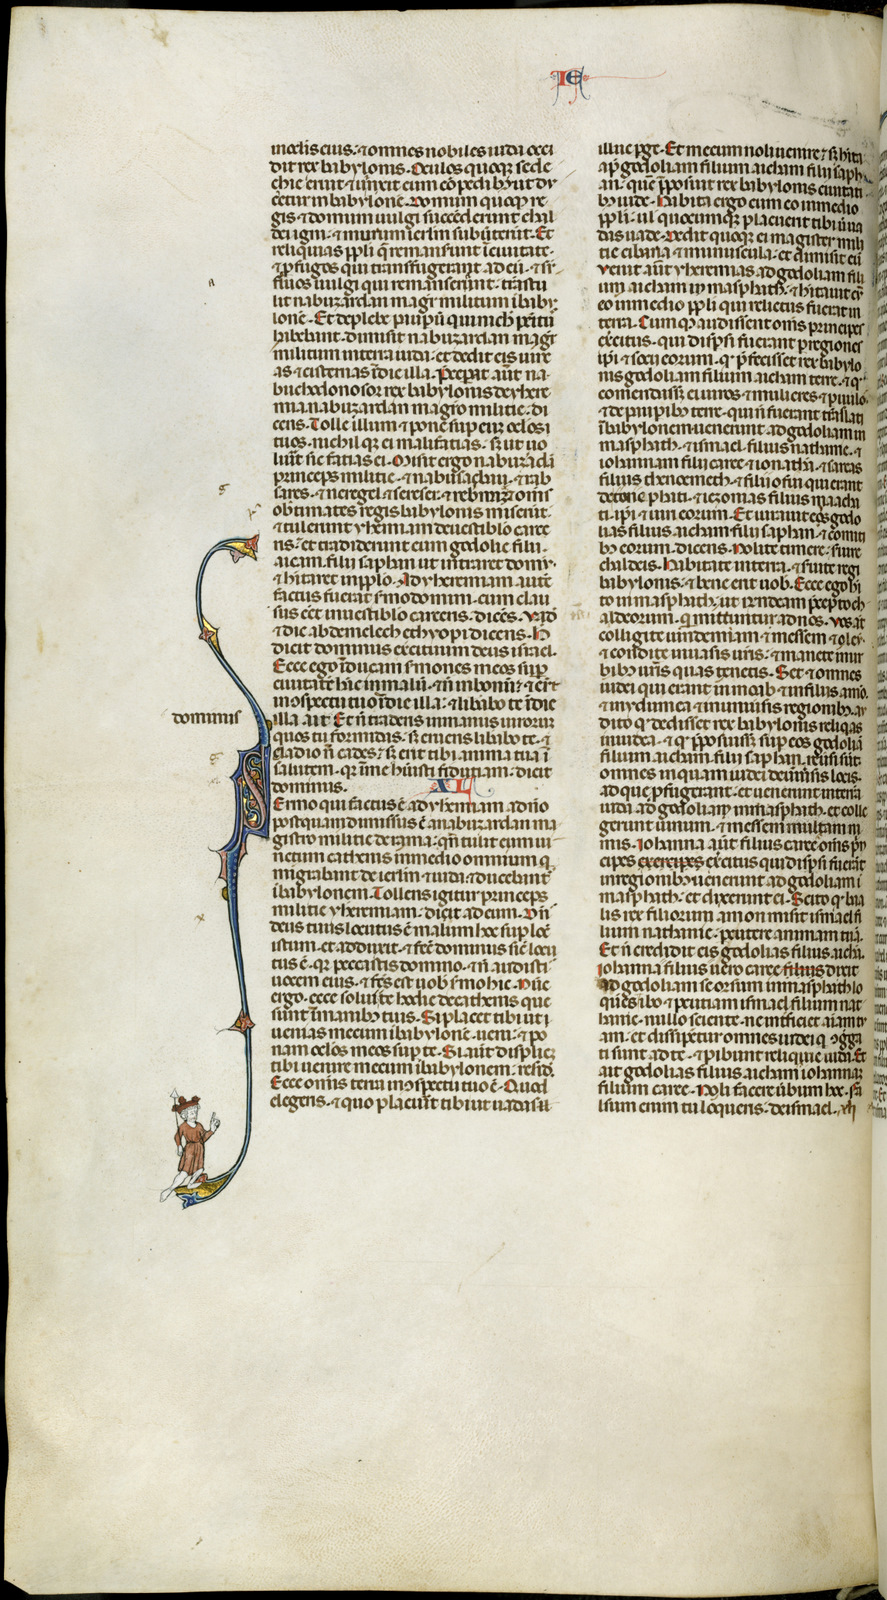 IE
in oclis eius: ⁊ omnes nobiles iuda occi
dit rex babylonis. Oculos quoq; sede
chie eruit ⁊ uinxit eum
cetur in babylonē. Domum quoq; re
gis ⁊ domum uulgi succēderunt chal
dei igni ⁊ murum ierlm subūterūt. Et
reliquias ppli q̄ remansunt ī ciuitate
⁊ pfugos qui transfugerant ad eū ⁊
fluos uulgi qui remanserunt: trāstu
lit nabuzardan magr militum ī baby
lonē. Et de plebe
habebant. dimisit nabuzardan magr
militum in terra iuda. ⁊ dedit eis uine
as ⁊ cisternas ī die illa. Preceperat aūt na
buchodonosor rex babylonis de yhere
mia nabuzardan magro militie. di
cens. Tolle illum ⁊ pone sup eum oclos
tuos. nichilq; ei mali facias. s; ut uo
luīt sic facias ei. Misit ergo nabuzadā
princeps militie. ⁊ nabusazban. ⁊ rab
sares. ⁊ neregel ⁊ sereser. ⁊ rebmag ⁊ oms
obtimates regis babylonis miserūt.
⁊ tulerunt yhermiam de uestiblo carce
ris: et tradiderunt eum godolie filii
aicam filii saphan ut intraret domū.
⁊ hitaret in pplo. Ad yheremiam autē
factus fuerat smo domini. cum clau
sus eēt in uestiblo carceris. dicēs. Vad
⁊ dic abdemelech ethyopi dicens. H
dicit dominus exercituum deus israel.
Ecce ego īducam smones meos sup
ciuitatē hāc in malū. ⁊ n̄ in bonū. ⁊ erūt
in ospectu tuo ī die illa: ⁊ libabo te ī die
dominus illa ait Et n̄ traderis in manus uirorum
quos tu formidas. s; eruens libabo te. ⁊
gladio n̄ cades: s; erit tibi anima tua ī
salutem. qr in me huisti fiduciam: dicit
dominus. XL
Sermo qui factus ē ad yheremiam a dño
postquam dimissus ē a nabuzardan ma
gistro militie de rama: qn̄ tulit eum ui
nctum cathenis in medio omnium q
migrabant de ierlm ⁊ iuda. ⁊ ducebant
ī babylonem. Tollens igitur princeps
militie yheremiam. dicit ad eum. Dn̄s
deus tuus locutus ē malum hoc sup locū
istum. et adduxit. ⁊ fec dominus sic locu
tus ē. qr peccastis domino. ⁊ n̄ audisti
uocem eius. ⁊ fcs est uob smo hic. Nūc
ergo ecce solui te hodie de cathenis que
sunt ī manibus tuis. Si placet tibi ut
uenias mecum ī babylonē. ueni. ⁊ po
nam oclos meos sup te. Si aūt displicet
tibi uenire mecum ī babylonem: resid.
Ecce omis terra in ospectu tuo ē. Quod
elegeris. ⁊ quo placuit tibi ut uadas
illuc pge. Et mecum noli uenire: s; hita
ap godoliam filium aicham filii saph
an. quē pposuit rex babylonis ciuitati
b; iude. Habita ergo cum eo in medio
ppli: ul quocumq; placuerit tibi ut ua
das uade. Dedit quoq; ei magister mili
tie cibaria ⁊ munuscula. et dimisit eū
Venit aūt yheremias ad godoliam fili
um aicham in masphath: ⁊ hitauit cū
eo in medio ppli qui relictus fuerat in
terra. Cumq; audissent oms principes
exercitus. qui dispsi fuerant p regiones
ipi ⁊ socii eorum. qr pfecisset rex babylo
nis godoliam filium aicham terre. ⁊ q
comendasset ei uiros ⁊ mulieres ⁊ puulos
⁊ de paupib; terre. qui n̄ fuerant trāslati
ī babylonem uenerunt ad godoliam in
masphath. ⁊ ismael filius nathanie. ⁊
iohannam filii caree ⁊ ionathā. ⁊ sareas
filius thenoemeth. ⁊ filii ofin qui erant
⁊ iezonias filius maacha
ti. ipi ⁊ uiri eorum. Et iurauit eis godo
lias filius aicham filii saphan. ⁊ comiti
b; eorum. dicens. Nolite timere: fuire
chaldeis. Habitate in terra. ⁊ suite regi
babylonis. ⁊ bene erit uob. Ecce ego hi
to in masphath: ut
aldeorum. q mittuntur ad nos. Vos at
colligite uindemiam. ⁊ messem ⁊ oleū.
⁊ condite in uasis uris: ⁊ manete in ur
bib; uris quas tenetis. Set ⁊ omnes
iudei qui erant in moab ⁊ in filiis amō.
⁊ in ydumea ⁊ in uniuersis regionib;. au
dito q dedisset rex babylonis reliqas
in iudea. ⁊ q pposuisset sup eos godoliā
filium aicham filii saphan. reūsi sūt
omnes inquam iudei de uniūsis locis.
ad que pfugerant. et uenerunt in terrā
iuda ad godoliam in masphath. et colle
gerunt uinum. ⁊ messem multam ni
mis. Iohanna aūt filius caree oms prin
cipes exercitus qui dispsi fuerāt
in regionib; uenerunt ad godoliam ī
masphath. et dixerunt ei. Scito q baa
lis rex filiorum amon misit ismael fi
lium nathanie. pcutere animam tuā.
Et n̄ credidit eis godolias filius aichā.
Iohanna filius uero caree filius dixit
ad godoliam seorsum in masphath lo
quēs. ibo ⁊ pcutiam ismael filium nat
hanie. nullo sciente. ne intficiet aiam tu
am. et dissipetur omnes iudei q ogga
ti sunt ad te. ⁊ pibunt reliquie iuda. Et
ait godolias filius aicham iohannan
filium caree. Noli facere ūbum hoc. fa
lsum enim tu loqueris. de ismael. xli